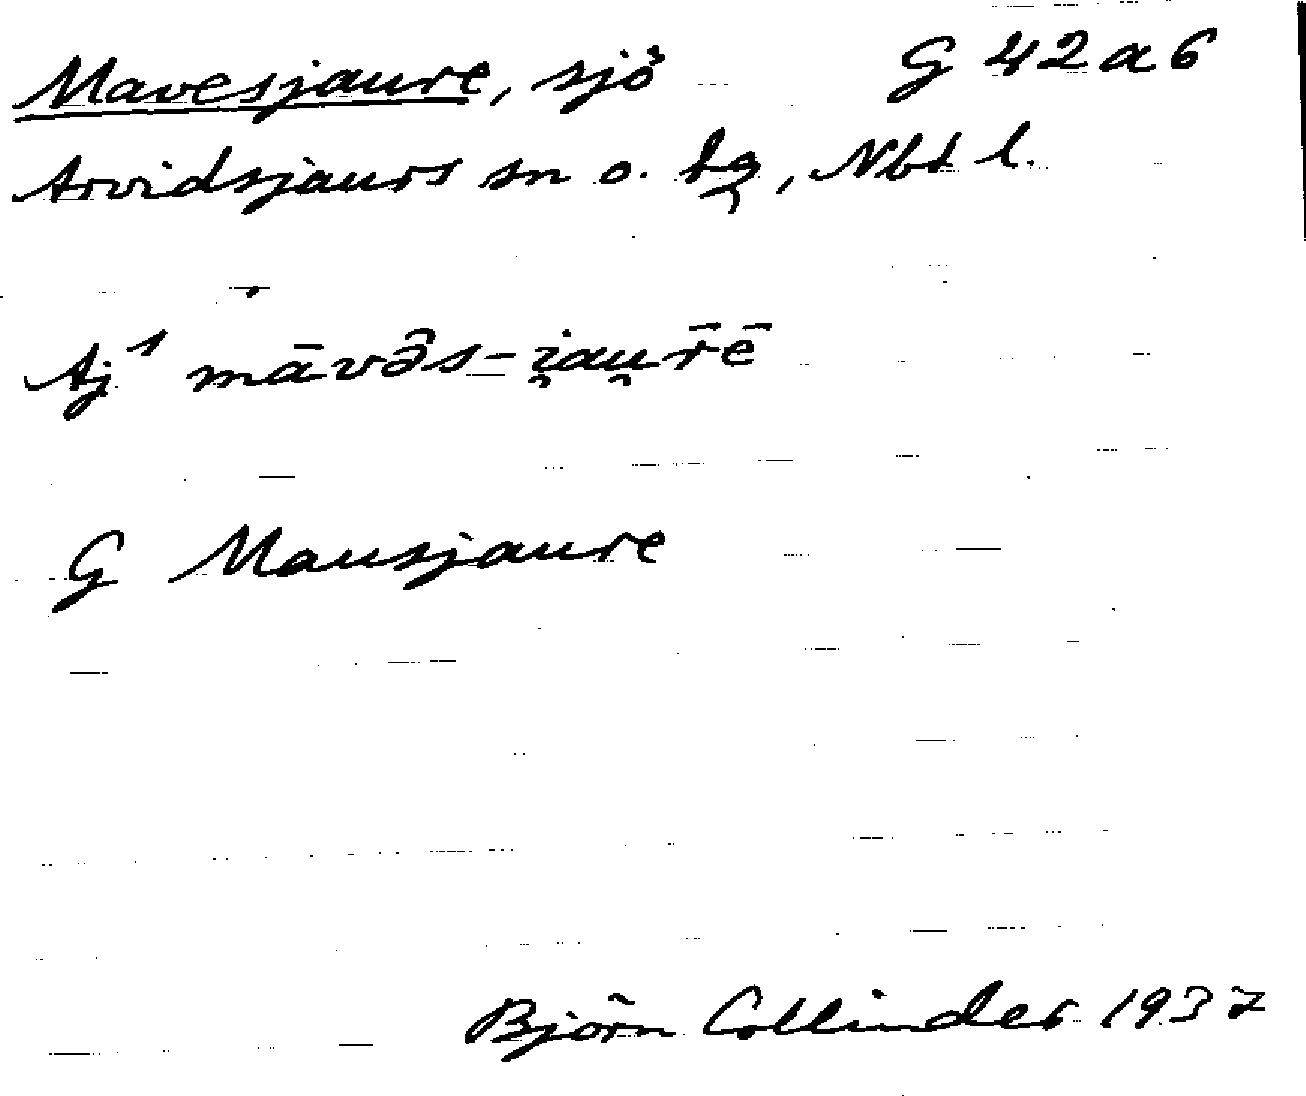 Mavesjaure, sjö G 42 a 6
Arvidsjaurs sn o. tg, Nbt l.
Aj¹ māvə̑s-i̯au̯r̄ē
G Mausjaure
Björn Collinder 1937